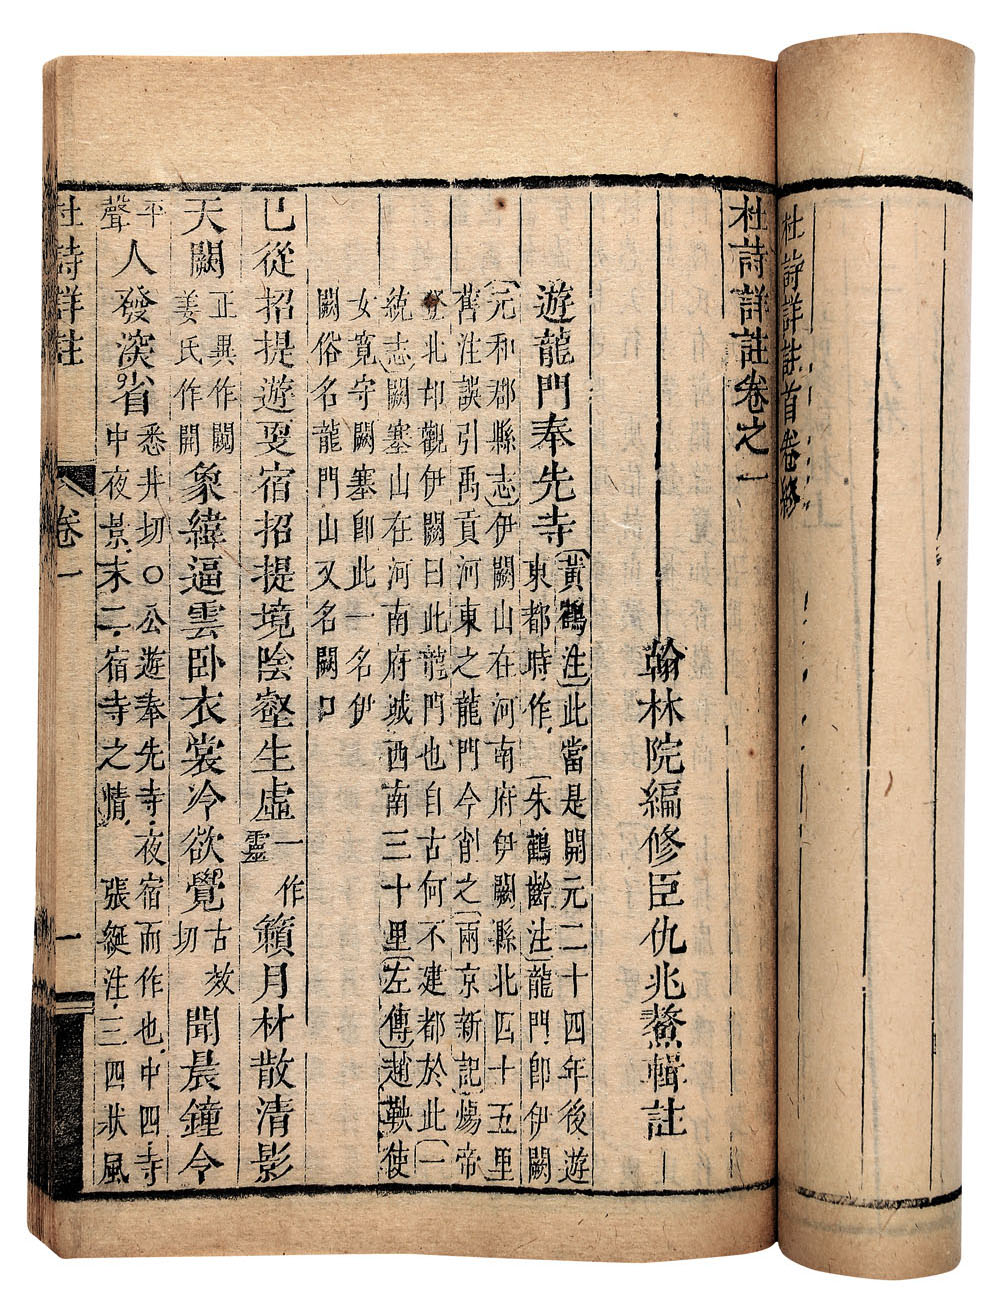 杜詩詳註首卷終
杜詩詳註卷之一
翰林院編修臣仇兆鰲輯註
遊龍門奉先寺
黃鶴注此當是開元二十四年後遊
東都時作 朱鶴齡注龍門卽伊闕
元和郡縣志伊闕山在河南府伊闕縣北四十五里
舊注誤引禹貢河東之龍門今削之 兩京新記煬帝
登北邙觀伊闕曰此龍門也自古何不建都於此 一
統志闕塞山在河南府城西南三十里 左傳趙鞅使
女寬守闕塞卽此一名伊
闕俗名龍門山又名闕口
已從招提遊更宿招提境陰壑生虛一作靈籟月林散清影
天闕正異作闚姜氏作開象緯逼雲臥衣裳冷欲覺古效切聞晨鐘令
平聲人發深省悉井切○公遊奉先寺夜宿而作也中四寺中夜景末二宿寺之情 張綖注三四狀風
杜詩詳註
卷一
一